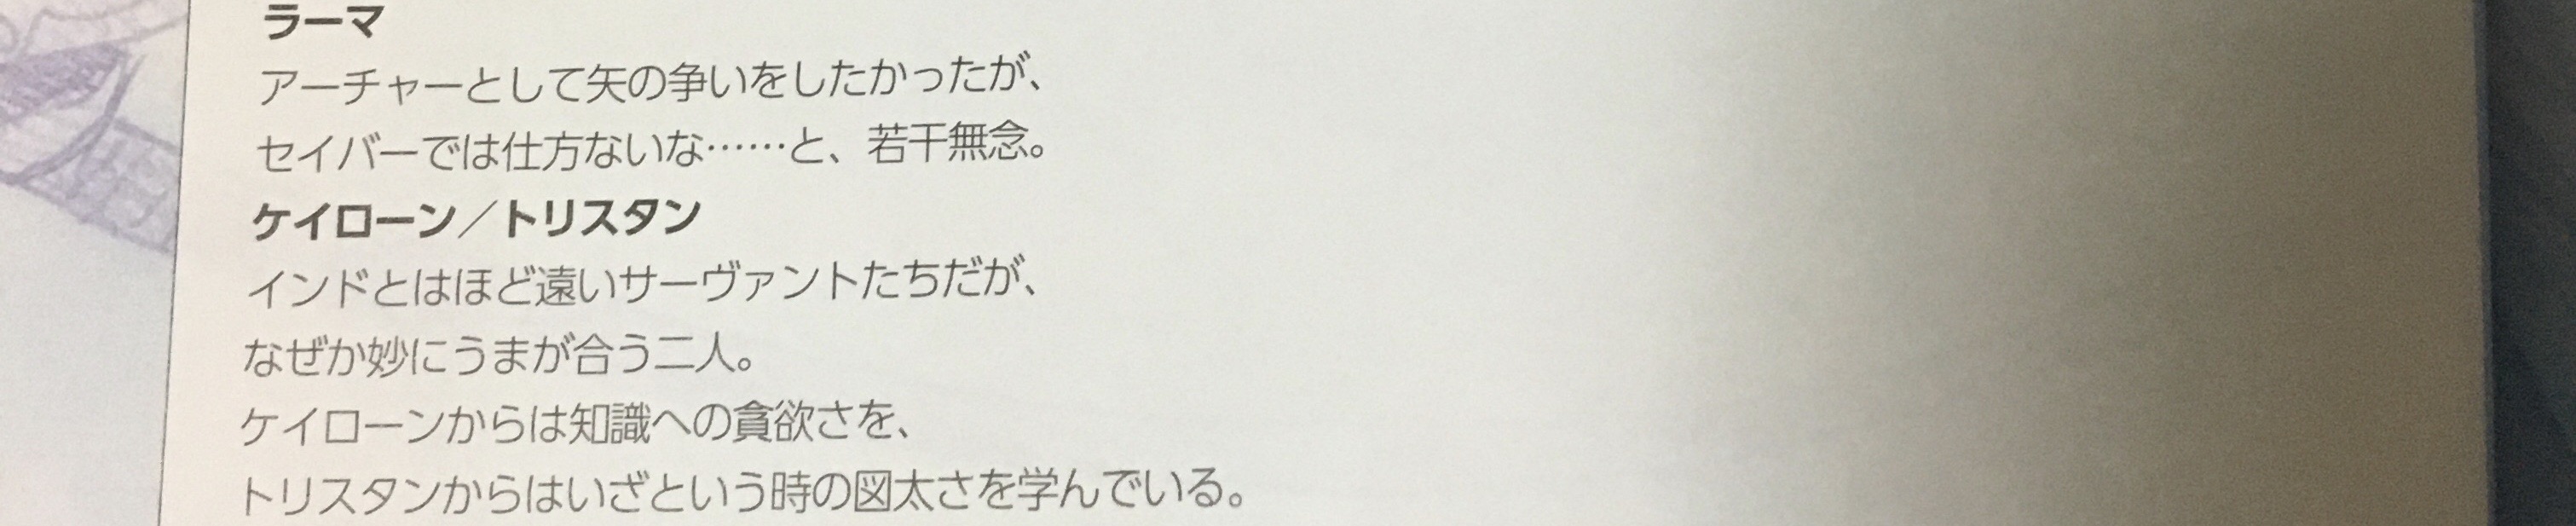 ラーマ
アーチャーとして矢の争いをしたかったが、
セイバーでは仕方ないな……と、若干無念。
ケイローン／トリスタン
インドとはほど遠いサーヴァントたちだが、
なぜか妙にうまが合う二人。
ケイローンからは知識への貪欲さを、
トリスタンからはいざという時の図太さを学んでいる。